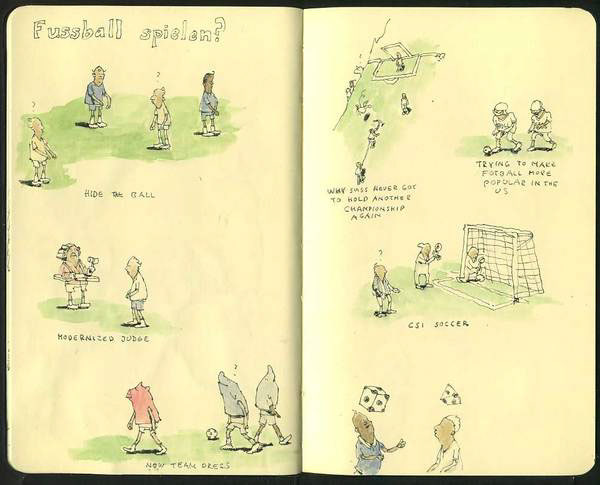 Fussball spielen?
?
?
?
HIDE THE BALL
MODERNIZED JUDGE
?
TEAM DRESS
WHY NEVER GOT
TO HOLD ANOTHER
CHAMPIONSHIP
AGAIN
TRYING TO MAKE
FOTBALL MORE
POPULAR IN THE
US
?
CSI SOCCER